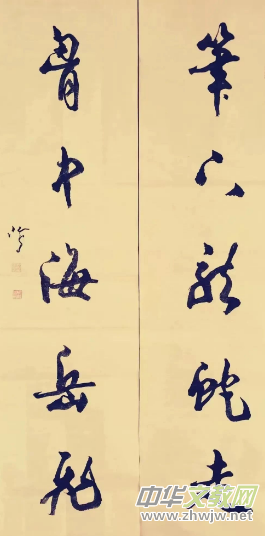 筆下龍虵走
胷中海岳飛
中华文教网
www.zhwjw.net